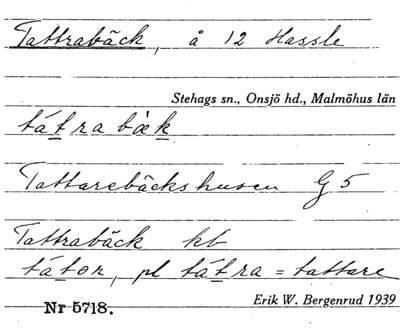 Tattrabäck, å 12 Hassle
Stehags sn., Onsjö hd., Malmöhus län
tátra bæ̀k
Tattarebäckshusen G5
Tattrabäck kb
tátor, pl tátra = tattare
Nr 5718. Erik W. Bergenrud 1939